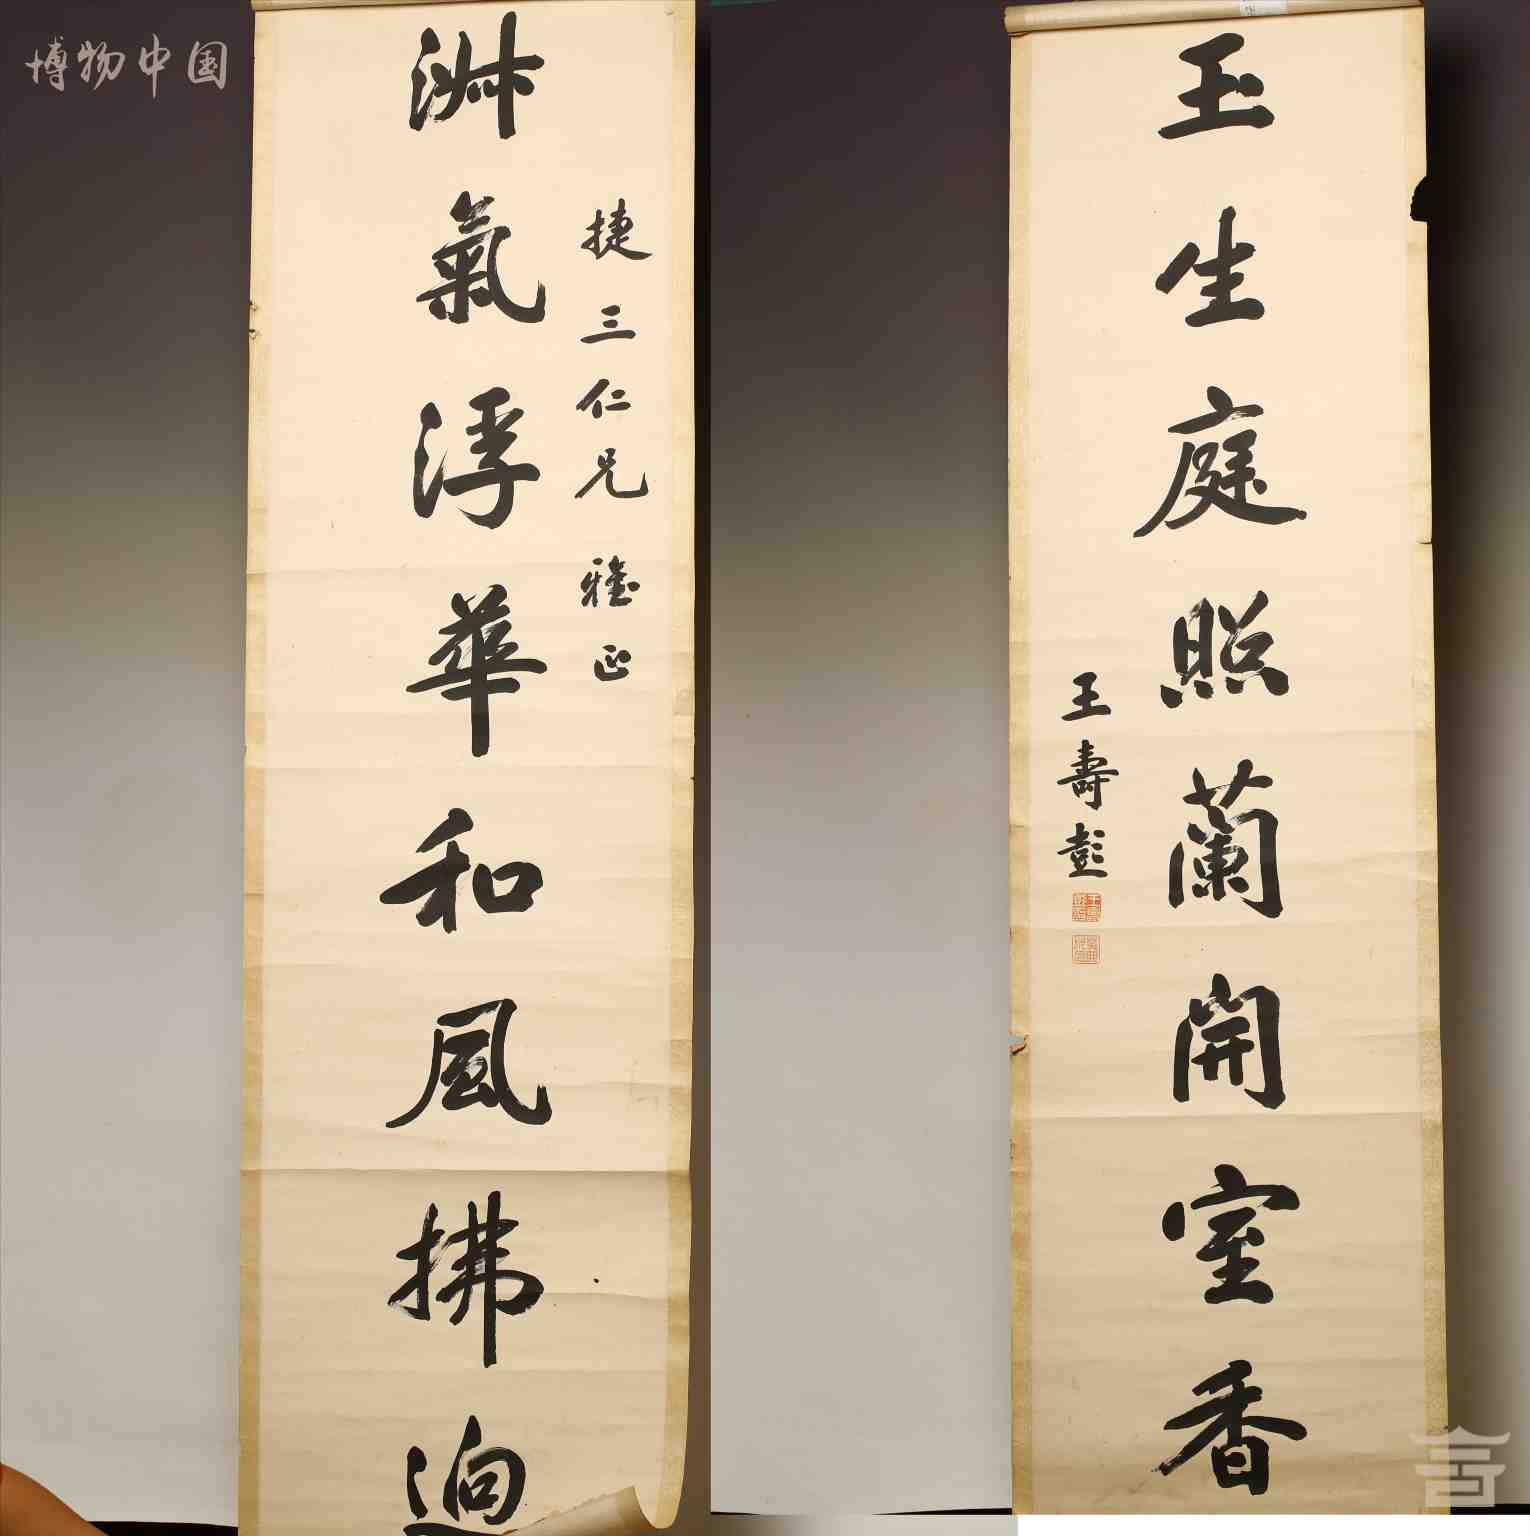 博物中国
捷三仁兄雅正
淑氣浮華和風拂逈
玉生庭照蘭開室香
王壽彭